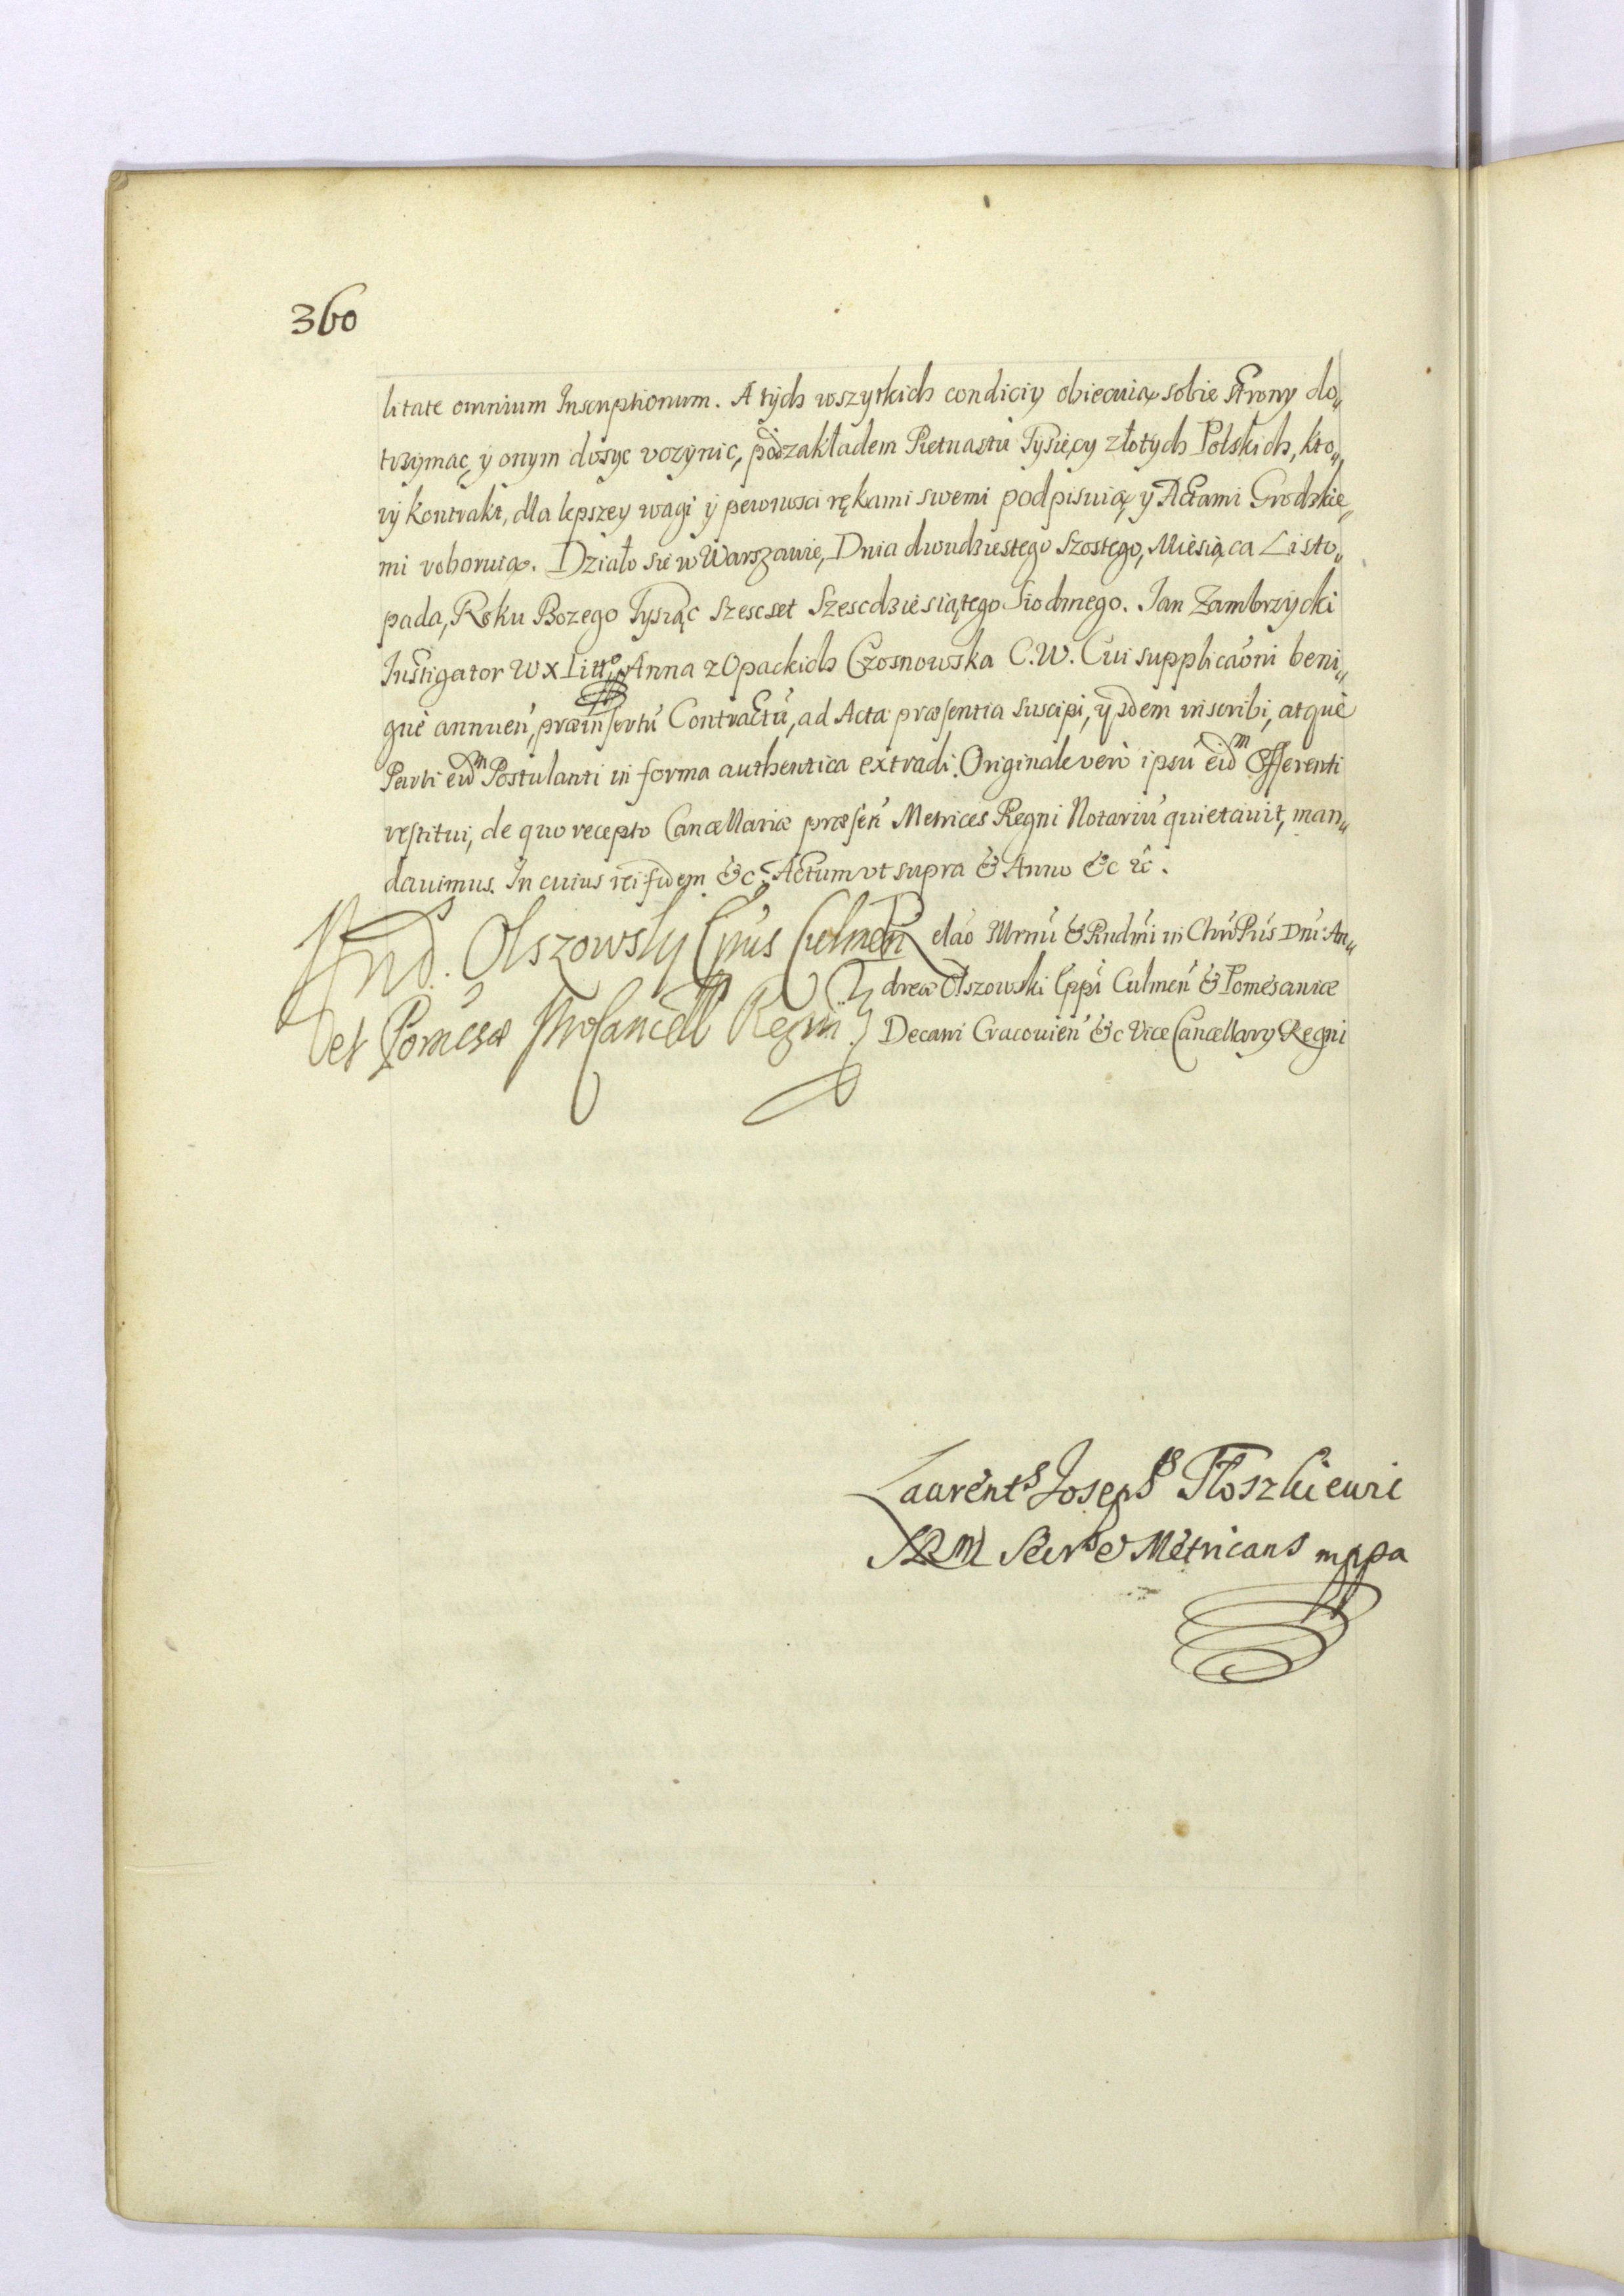 360
litate omnium Inscriptionum. A tych wszytkich condiciy obiecuią sobie strony do„
trzymac, y onym dosyc vczynic, pod zakładem Pietnastu Tysięcy złotych Polskich, kto„
ry kontrakt, dla lepszey wagi y pewnosci rękami swemi podpisuią y Actami Grodzkie„
mi roboruią. Działo się w Warszawie, Dnia dwudziestego Szostego, Miesiąca Listo„
pada, Roku Bozego Tysiąc Szescset Szescdziesiątego Siodmego. Jan Zambrzycki
Instigator W X Litt° Anna z Opackich Czosnowska C. W. Cui supplicaōni beni„
gnè annueń, præinsertū Contractū, ad Acta præsentia suscipi, ysdem inscribi, atquè
Parti eidm Postulanti in forma authentica extradi. Originale verò ipsū eidm Offerenti
restitui, de quo recepto Cancellariæ præseń Metrices Regni Notariū quietauit, man„
dauimus. In cuius rei fidem &c. Actum vt supra & Anno &c &c.
And. Olszowsky Epūs Culmeń
et Pomesæ ProCancell Regni
Relāo Illrmi & Rndmi in Chro Pris Dni An„
dreæ Olszowski Eppi Culmeń & Pomesaniæ
Decani Cracouień &c Vice Cancellary Regni
Laurents Josephs Płoszkiewic
SRM Secrs & Metricans mppa